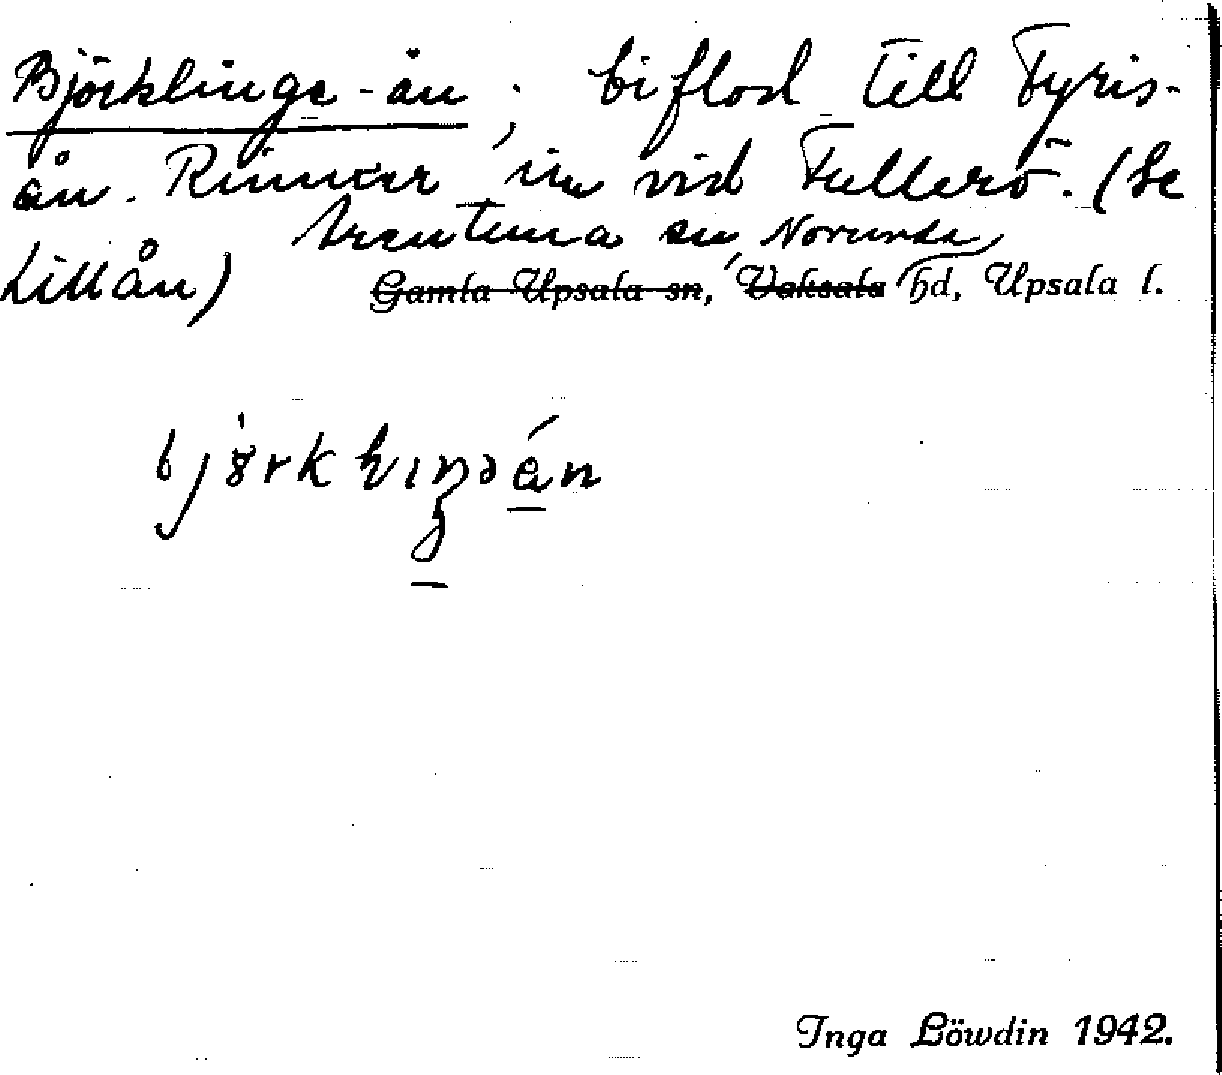 Björklinge-ån, biflod till Fyris-
ån. Rinner in vid Fullerö. (Se
Ärentuna sn Norunda
Lillån) Gamla Upsala sn, Vaksala hd, Upsala l.
Inga Löwdin 1942.